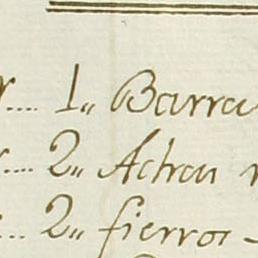 1,, Barra
2,, Achas
2,, fierros